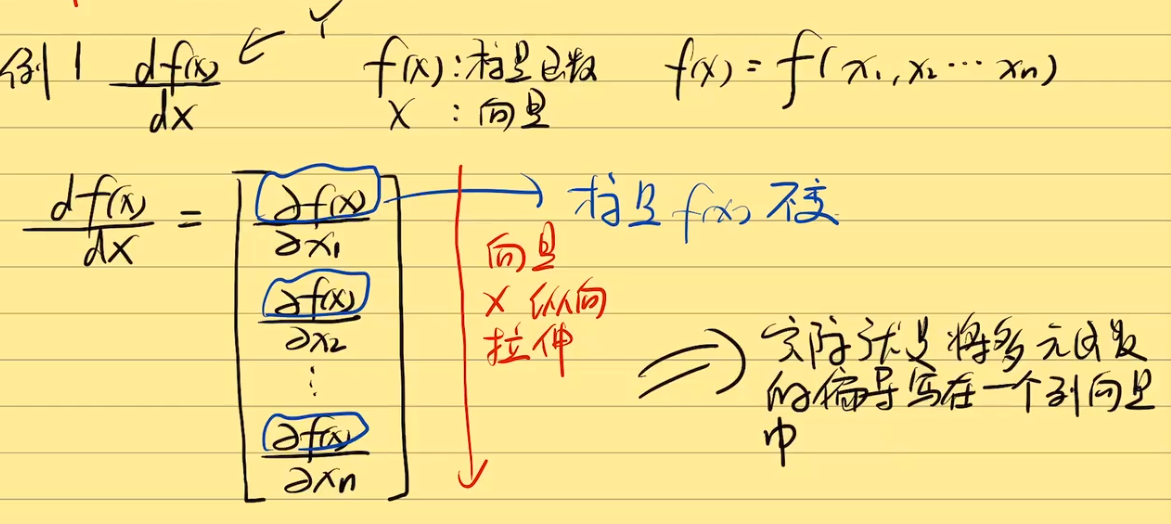 例1 df(x)/dx ← Y f(x):标量函数 f(x) = f(x₁, x₂ ⋯ xₙ)
X : 向量
df(x)/dx = [∂f(x)/∂x₁ → 标量 f(x) 不变
∂f(x)/∂x₂
⋮
∂f(x)/∂xₙ]
向量
X 纵向
拉伸
⇒ 实际就是将多元函数
的偏导写在一个列向量
中